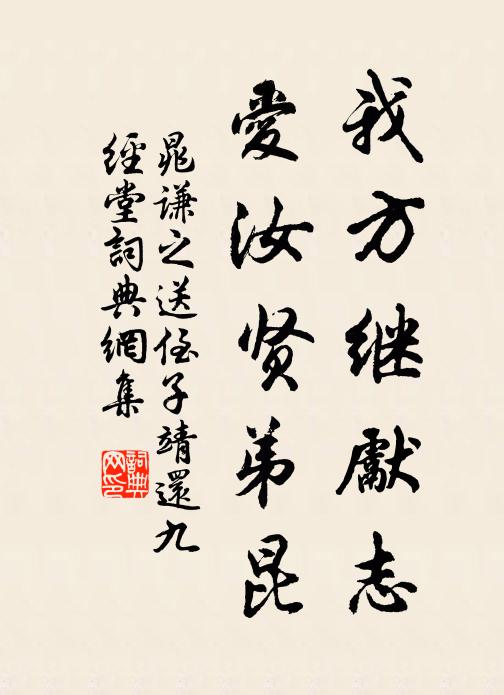 我方继獻志
愛汝贤弟昆
晁谦之送侄子靖還九
經堂詞典網集
詞典
网印